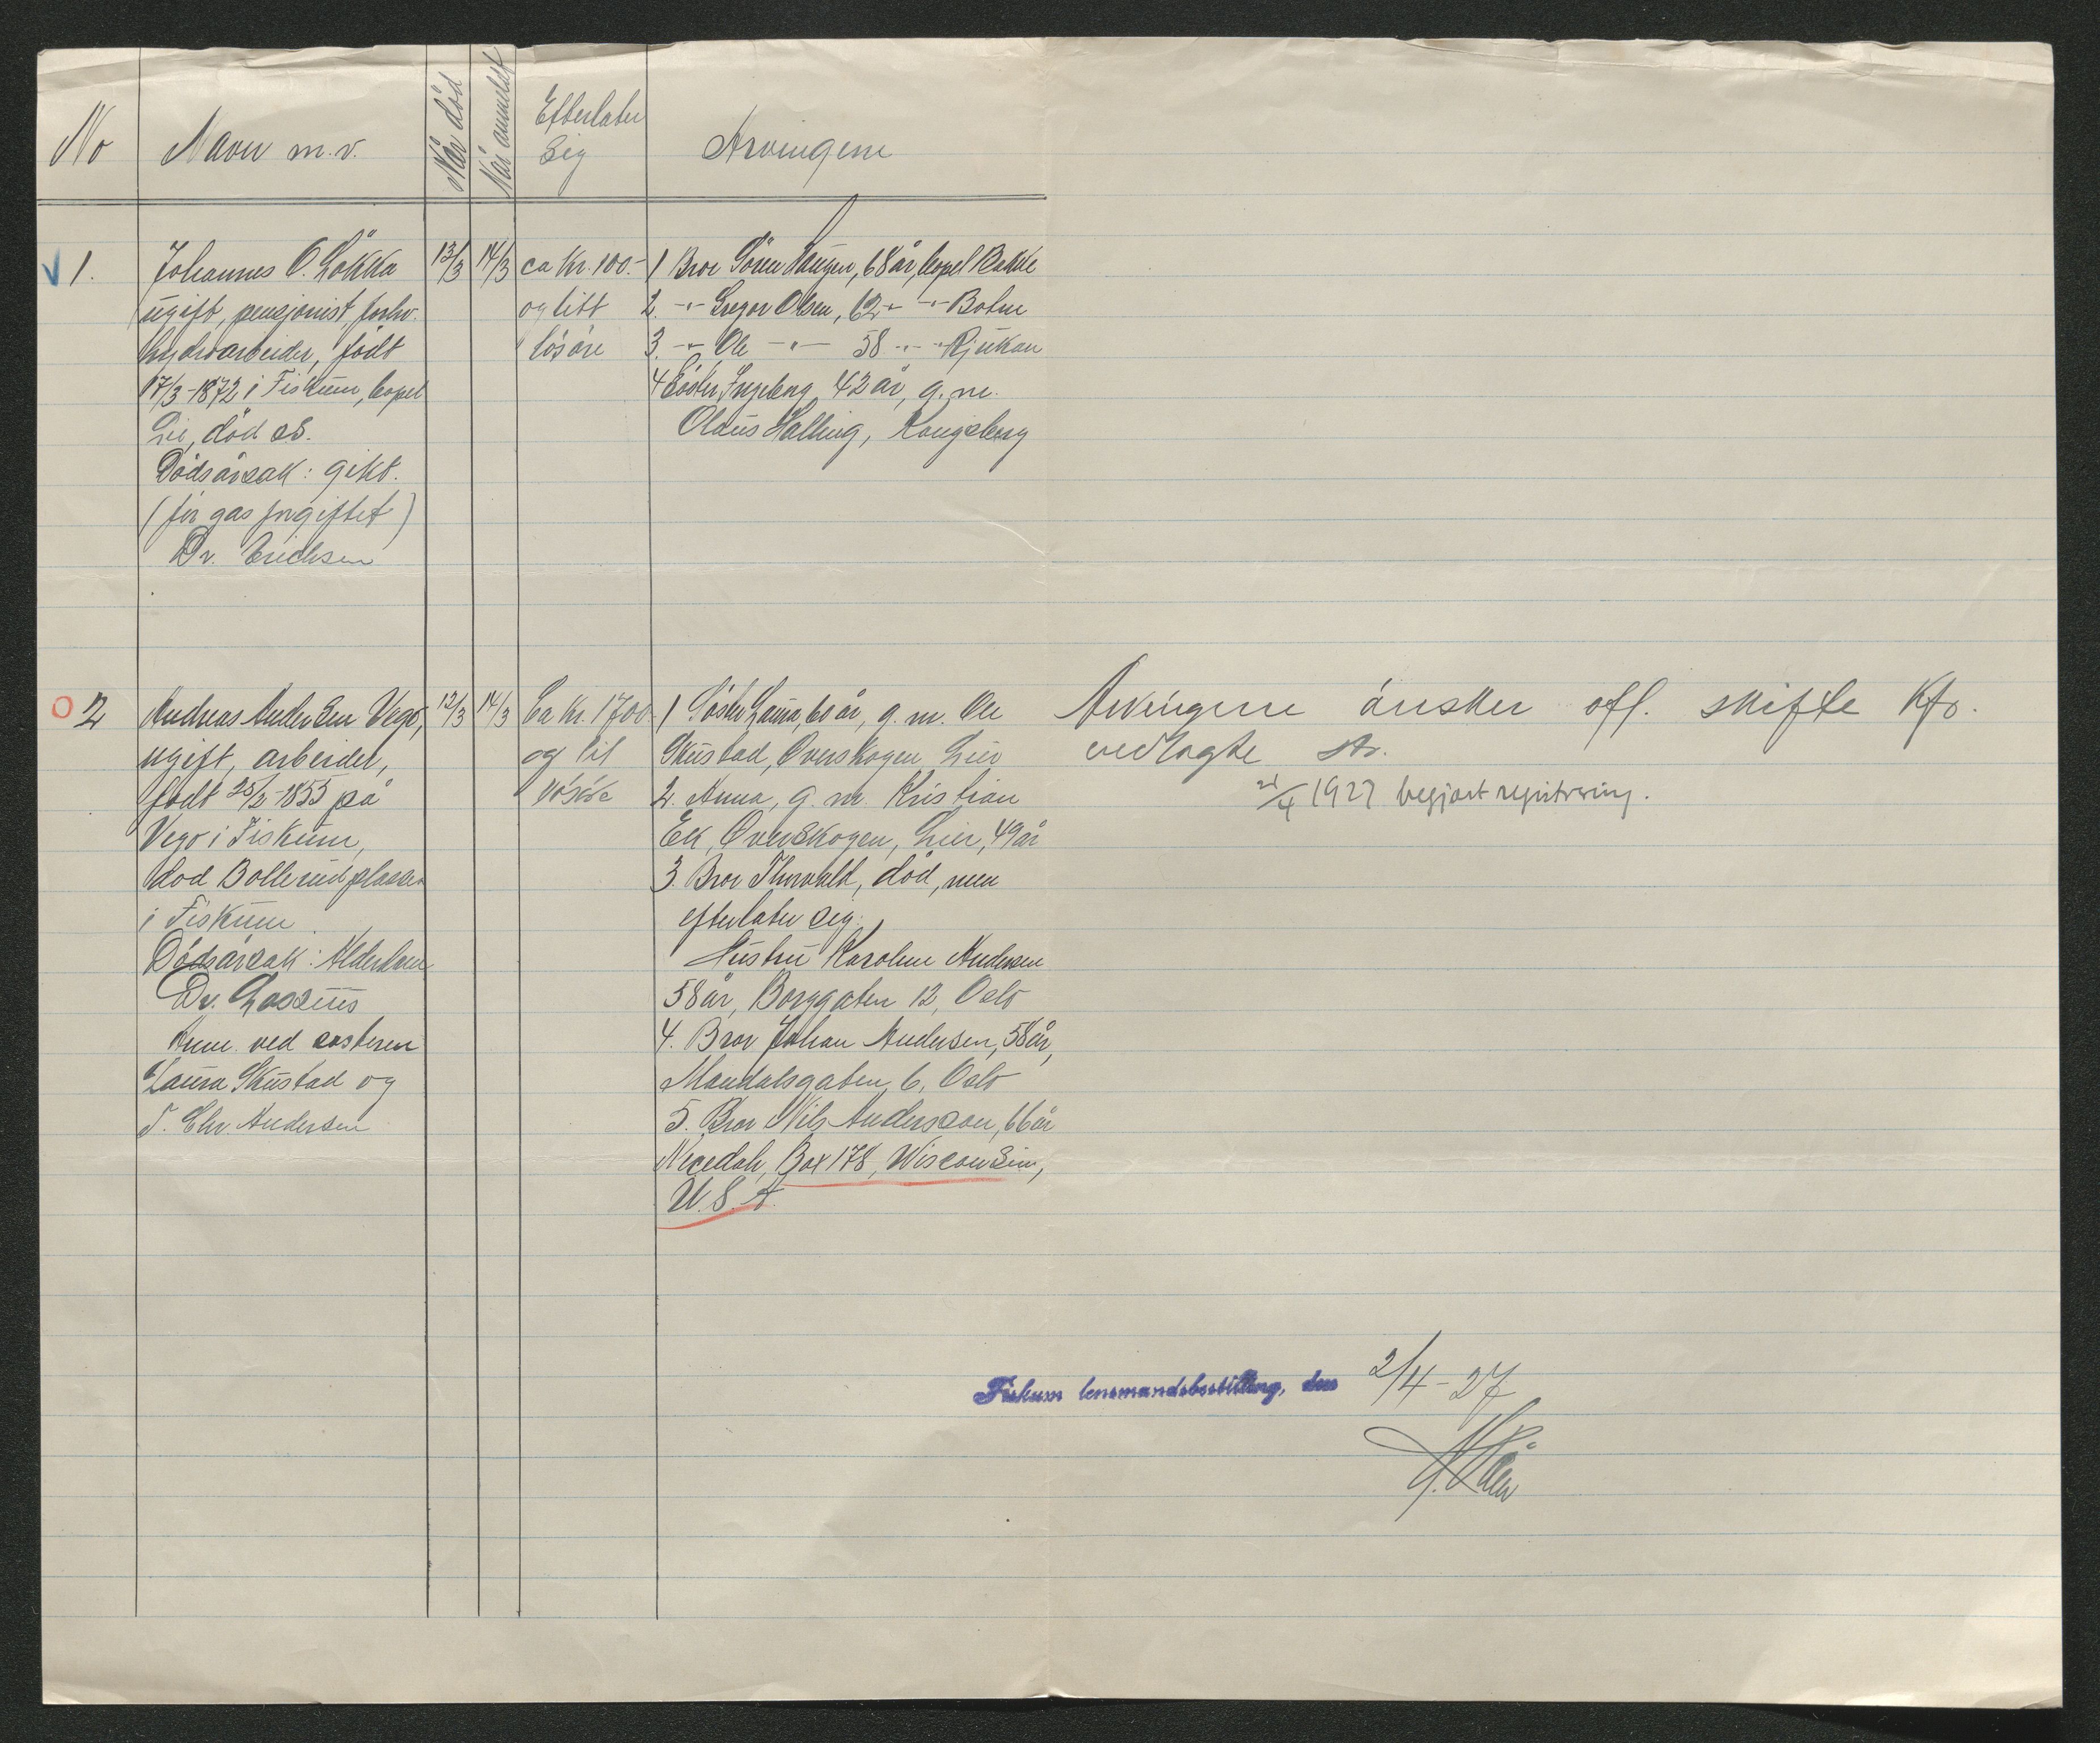 No
Navn m.v.
Når død
Når anmeldt
Efterlater
sig
Arvingene
1.
Johannes O. Løkka
ugift, pensjonist, forhv.
hydroarbeider, født
17/3-1872 i Fiskum, bopel
død os.
Dødsårsak: gikt.
(før gas forgiftet)
Dr. Erichsen
13/3
14/3
ca kr. 100.-
og litt
løsøre
1 Bror Sören Haugen, 68 år, bopel Bakke
2. -"- Gregor Olsen, 62 -"- -"- Botne
3. -"- Ole -"- 58 -"- -"- Rjukan
4 Söster Ingeborg 42 år, g. m.
Oldus Halling, Kongsberg
2
Andreas Andersen Vego,
ugift, arbeider,
født 25/2-1855 på
Vego i Fiskum,
død Bollerudplassen
i Fiskum.
Dødsårsak: Alderdom
Dr. Lassius
Anm. ved søsteren
Laura Skustad og
T. Chr. Andersen
12/3
14/3
Ca kr. 1700
og lit
løsøre
1 Søster Laura, 60 år, g. m. Ole
Skustad, Overskogen, Lier
2. Anna, g. m. Kristian
Ek, Overskogen, Lier, 49 år
3. Bror Thorvald, død, men
efterlater sig:
Hustru Karoline Andersen
58 år, Borggaten 12, Oslo
4. Bror Johan Andersen, 58 år,
Mandalsgaten 6, Oslo
5. Bror Nils Andersson, 66 år
Necedah, Box 178, Wisconsin,
U. S. A
Arvingene ønsker off. skifte kfr.
vedlagte
21/4 1927 begjært registrering.
Fiskum lensmandsbestilling, den 2/4-27